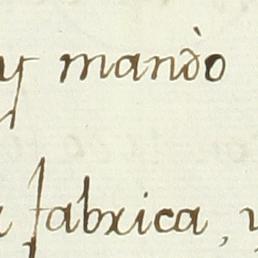 y mandò
fabrica, y